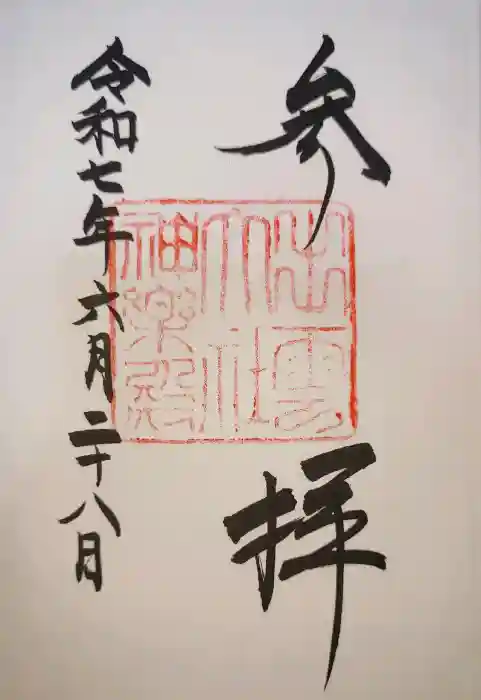 参拝
出雲
大社
神楽殿
令和七年六月二十八日